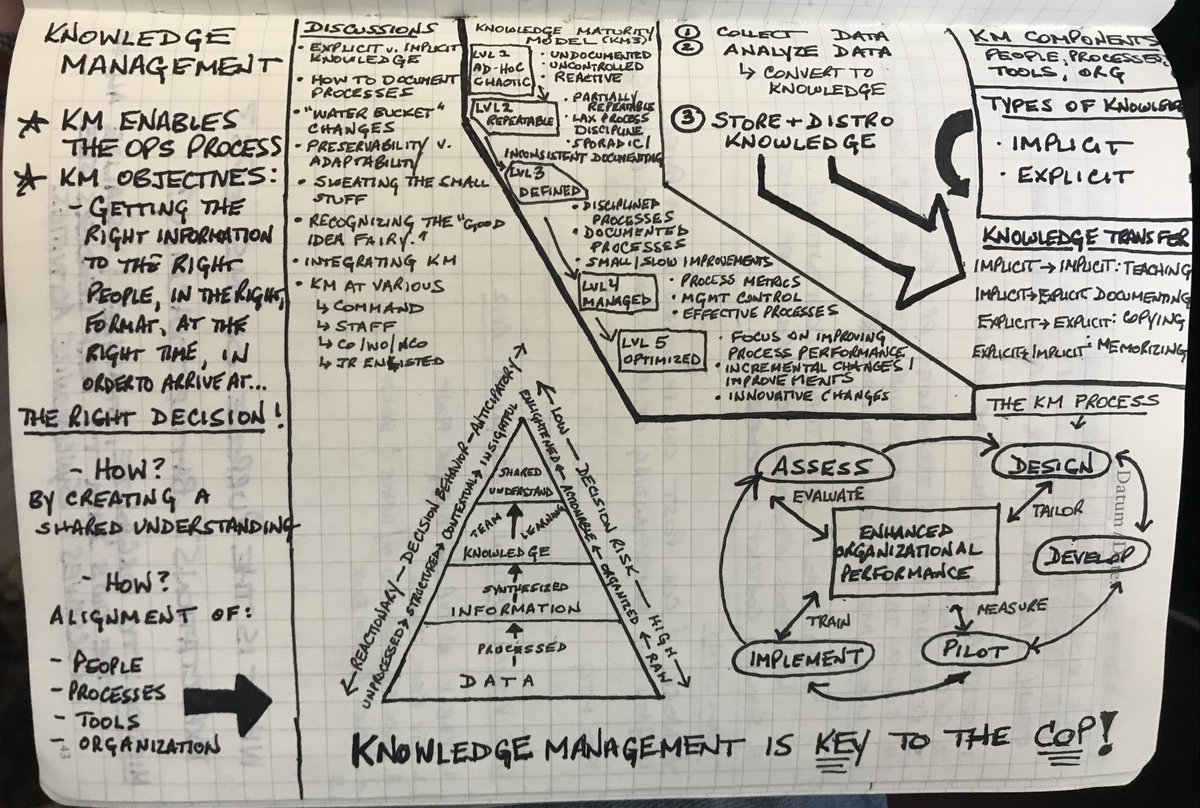 KNOWLEDGE
MANAGEMENT
* KM ENABLES
THE OPS PROCESS
* KM OBJECTIVES:
- GETTING THE
RIGHT INFORMATION
TO THE RIGHT
PEOPLE, IN THE RIGHT,
FORMAT, AT THE
RIGHT TIME, IN
ORDER TO ARRIVE AT...
THE RIGHT DECISION!
- HOW?
BY CREATING A
SHARED UNDERSTANDING
- HOW?
ALIGNMENT OF:
- PEOPLE
- PROCESSES
- TOOLS
- ORGANIZATION
43
DISCUSSIONS
• EXPLICIT v. IMPLICIT
KNOWLEDGE
• HOW TO DOCUMENT
PROCESSES
• "WATER BUCKET"
CHANGES
• PRESERVABILITY v.
ADAPTABILITY
• SWEATING THE SMALL
STUFF
• RECOGNIZING THE "GOOD
IDEA FAIRY."
• INTEGRATING KM
• KM AT VARIOUS
↳ COMMAND
↳ STAFF
↳ CO/WO/NCO
↳ JR ENLISTED
KNOWLEDGE MATURITY
MODEL (KM3)
LVL 1
AD-HOC
CHAOTIC
• UNDOCUMENTED
UNCONTROLLED
• REACTIVE
LVL 2
REPEATABLE
• PARTIALLY
REPEATABLE
• LAX PROCESS
DISCIPLINE
• SPORADIC/
INCONSISTENT DOCUMENTING
LVL 3
DEFINED
• DISCIPLINED
PROCESSES
• DOCUMENTED
PROCESSES
• SMALL/SLOW IMPROVEMENTS
LVL 4
MANAGED
• PROCESS METRICS
• MGMT CONTROL
• EFFECTIVE PROCESSES
LVL 5
OPTIMIZED
• FOCUS ON IMPROVING
PROCESS PERFORMANCE
• INCREMENTAL CHANGES/
IMPROVEMENTS
• INNOVATIVE CHANGES
① COLLECT DATA
② ANALYZE DATA
↳ CONVERT TO
KNOWLEDGE
③ STORE + DISTRO
KNOWLEDGE
KM COMPONENTS
PEOPLE, PROCESSES,
TOOLS, ORG
TYPES OF KNOWLEDGE
• IMPLICIT
• EXPLICIT
KNOWLEDGE TRANSFER
IMPLICIT → IMPLICIT: TEACHING
IMPLICIT → EXPLICIT DOCUMENTING
EXPLICIT → EXPLICIT: COPYING
EXPLICIT → IMPLICIT: MEMORIZING
REACTIONARY — DECISION BEHAVIOR — ANTICIPATORY
UNPROCESSED → STRUCTURED → CONTEXTUAL → INSIGHTFUL
LOW — DECISION RISK — HIGH
ENLIGHTENED ← ACTIONABLE ← ORGANIZED ← RAW
SHARED
UNDERSTAND
TEAM LEARNING
KNOWLEDGE
SYNTHESIZED
INFORMATION
PROCESSED
DATA
THE KM PROCESS
ASSESS
DESIGN
EVALUATE
TAILOR
ENHANCED
ORGANIZATIONAL
PERFORMANCE
DEVELOP
TRAIN
MEASURE
IMPLEMENT
PILOT
Datum / Date
KNOWLEDGE MANAGEMENT IS KEY TO THE COP!